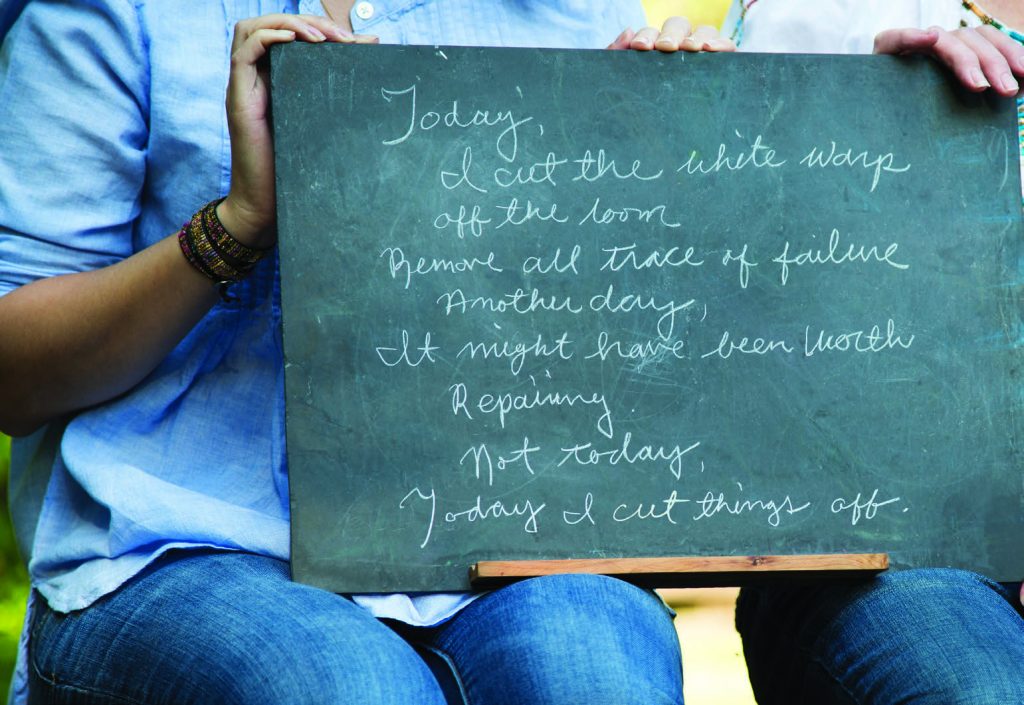 Today,
I cut the white warp
off the loom
Remove all trace of failure
Another day,
It might have been worth
Repairing.
Not today,
Today I cut things off.